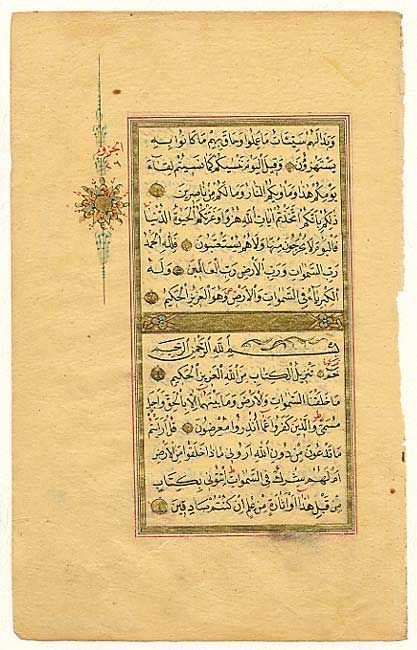 الجزؤ
٢٦
وَبَدَا لَهُمْ سَيِّئَاتُ مَا عَمِلُوا وَحَاقَ بِهِمْ مَا كَانُوا بِهِ
يَسْتَهْزِؤُنَ وَقِيلَ الْيَوْمَ نَنْسٰيكُمْ كَمَا نَسِيتُمْ لِقَاءَ
يَوْمِكُمْ هٰذَا وَمَأْوٰيكُمُ النَّارُ وَمَا لَكُمْ مِنْ نَاصِرِينَ
ذٰلِكُمْ بِاَنَّكُمُ اتَّخَذْتُمْ اٰيَاتِ اللّٰهِ هُزُوًا وَغَرَّتْكُمُ الْحَيٰوةُ الدُّنْيَا
فَالْيَوْمَ لَا يُخْرَجُونَ مِنْهَا وَلَا هُمْ يُسْتَعْتَبُونَ فَلِلّٰهِ الْحَمْدُ
رَبِّ السَّمٰوَاتِ وَرَبِّ الْاَرْضِ رَبِّ الْعَالَمِينَ وَلَهُ
الْكِبْرِيَاءُ فِي السَّمٰوَاتِ وَالْاَرْضِ وَهُوَ الْعَزِيزُ الْحَكِيمُ
بِسْمِ اللّٰهِ الرَّحْمٰنِ الرَّحِيمِ
حٰمٓ تَنْزِيلُ الْكِتَابِ مِنَ اللّٰهِ الْعَزِيزِ الْحَكِيمِ
مَا خَلَقْنَا السَّمٰوَاتِ وَالْاَرْضَ وَمَا بَيْنَهُمَا اِلَّا بِالْحَقِّ وَاَجَلٍ
مُسَمًّى وَالَّذِينَ كَفَرُوا عَمَّا اُنْذِرُوا مُعْرِضُونَ قُلْ اَرَاَيْتُمْ
مَا تَدْعُونَ مِنْ دُونِ اللّٰهِ اَرُونِي مَاذَا خَلَقُوا مِنَ الْاَرْضِ
اَمْ لَهُمْ شِرْكٌ فِي السَّمٰوَاتِ اِيتُونِي بِكِتَابٍ
مِنْ قَبْلِ هٰذَا اَوْ اَثَارَةٍ مِنْ عِلْمٍ اِنْ كُنْتُمْ صَادِقِينَ